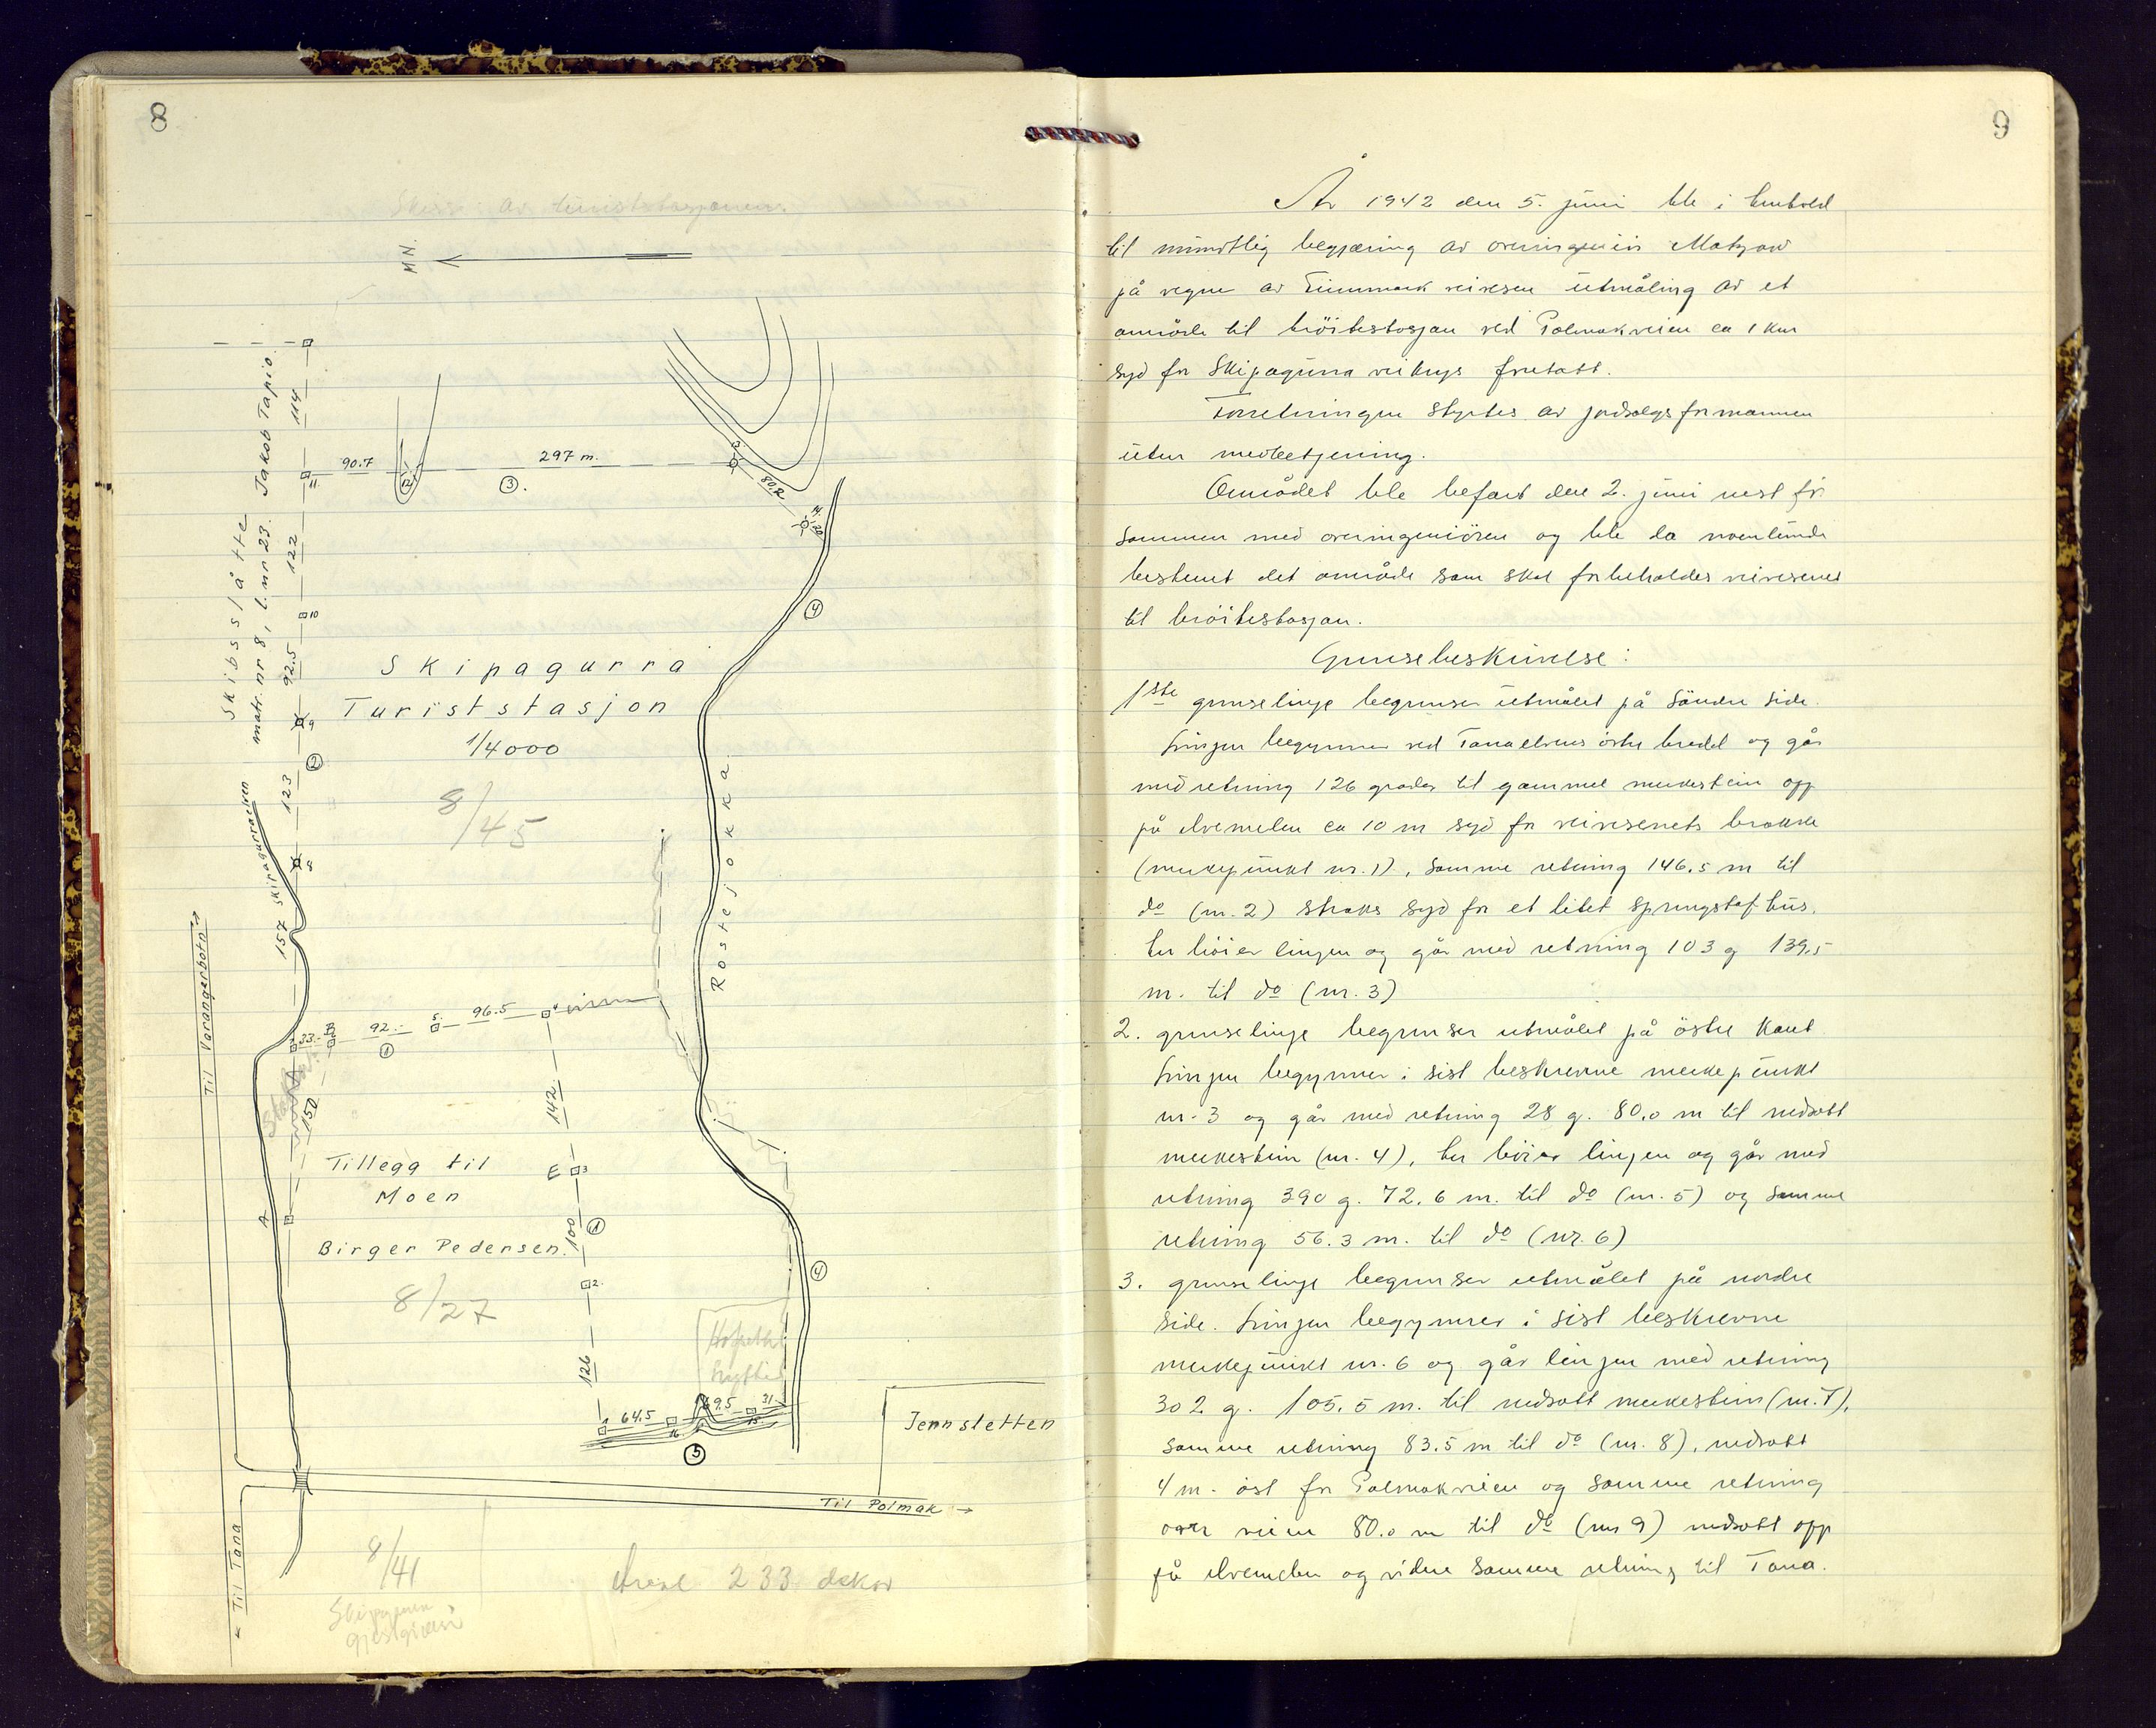 8
Skisse av turiststasjonen.
M N.
Skibsslåtte
matr. nr 8, l. nr 23. Jakob Tapio.
114
122
92.5
123
157
90.7
297 m.
80.2
11.
12
3.
14.
20
10
9
8
2
4
Skipagurra
Turiststasjon
1/4000
8/45
Skipagurraelven
Rostejokka.
Til Varangerbotn →
33.-
B
92.-
5.
96.5
4
1
150
142
Tillegg til
Moen
Birger Pedersen.
8/27
A
E
3
100
1
2.
126
4
1
64.5
16
69.5
31.-
15.
5
Jennsletten
Til Polmak →
← Til Tana
8/41
gjestgiveri
Areal 233 dekar
9
År 1942 den 5. juni ble i henhold
til muntlig begjæring av overingeniör Matzow
på vegne av Finnmark veivesen utmåling av et
område til bröitestasjon ved Polmakveien ca 1 km
syd for Skipagurra veikrys foretatt.
Forretningen styrtes av jordsalgsformannen
uten medbetjening.
Området ble befart den 2. juni nest før
sammen med overingeniören og ble da noenlunde
bestemt det område som skal forbeholdes veivesenet
til bröitestasjon.
Grensebeskrivelse:
1ste grenselinje begrenser utmålet på söndre side.
Linjen begynner ved Tanaelvens östre bredd og går
med retning 126 grader til gammel merkestein opp
på elvemelen ca 10 m syd for veivesenets brakke
(merkepunkt nr. 1), samme retning 146.5 m til
do (nr. 2) straks syd for et litet sprengstof-hus,
her böier linjen og går med retning 103 g 139.5
m. til do (nr. 3)
2. grenselinje begrenser utmålet på östre kant.
Linjen begynner i sist beskrevne merkepunkt
nr. 3 og går med retning 28 g. 80.0 m til nedsatt
merkestein (nr. 4), her böier linjen og går med
retning 390 g. 72.6 m. til do (nr. 5) og samme
retning 56.3 m. til do (nr. 6)
3. grenselinje begrenser utmålet på nordre
side. Linjen begynner i sist beskrevne
merkepunkt nr. 6 og går linjen med retning
302 g. 105.5 m. til nedsatt merkestein (nr. 7),
samme retning 83.5 m til do (nr. 8), nedsatt
4 m. öst for Polmakveien og samme retning
over veien 80.0 m til do (nr 9) nedsatt opp
på elvemelen og videre samme retning til Tana.